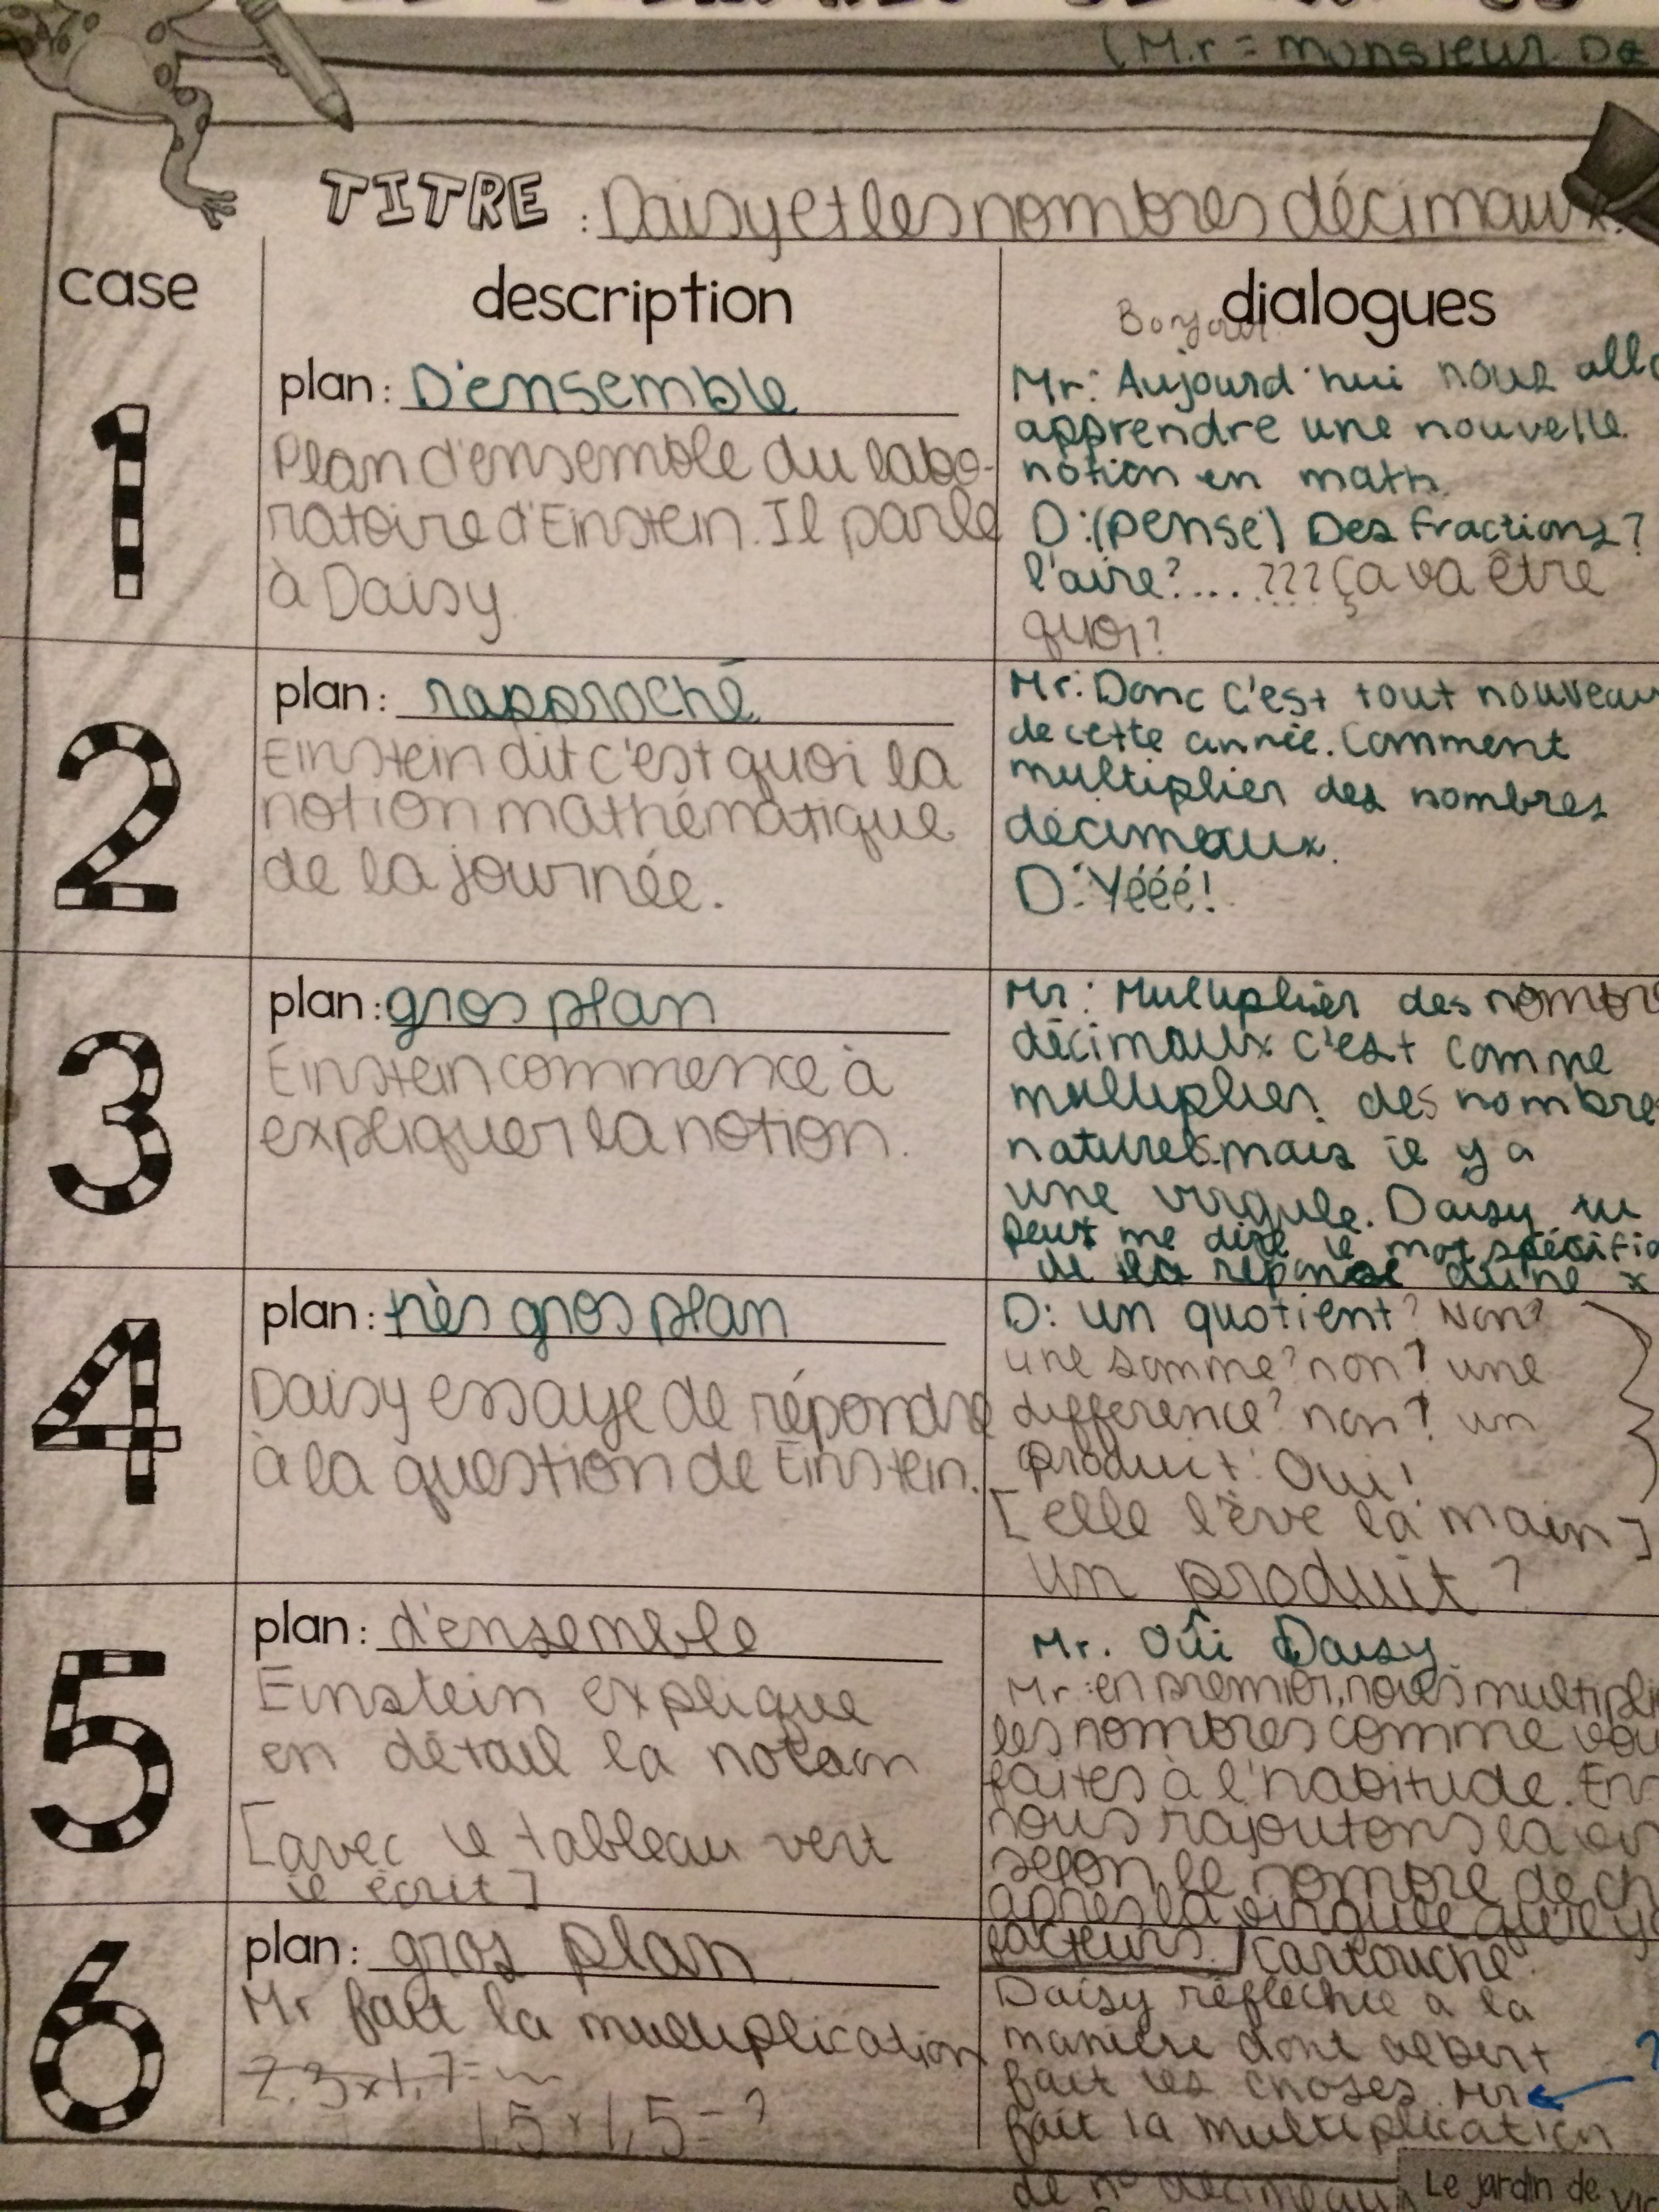 (M.r = monsieur De
TITRE : Daisy et les nombres décimaux.
case
description
dialogues
1
plan : D'ensemble
Plan d'ensemble du labo-
ratoire d'Einstein. Il parle
à Daisy
Bonjour
Mr: Aujourd'hui nous allo
apprendre une nouvelle
notion en math.
D:(pense) Des fractions?
l'aire?....??? ça va être
quoi?
2
plan : rapproché
Einstein dit c'est quoi la
notion mathématique
de la journée.
Mr: Donc c'est tout nouveau
de cette année. Comment
multiplier des nombres
décimaux.
D: Yééé!
3
plan : gros plan
Einstein commence à
expliquer la notion.
Mr: Multiplier des nombre
décimaux c'est comme
multiplier des nombre
naturels mais il y a
une virgule. Daisy tu
peux me dire le mot spécifiq
de la réponse d'une x
4
plan : très gros plan
Daisy essaye de répondre
à la question de Einstein.
D: un quotient? Non?
une somme? non? une
différence? non? un
produit: Oui!
[elle lève la main]
un produit?
5
plan : d'ensemble
Einstein explique
en détail la notion
[avec le tableau vert
il écrit]
Mr. Oui Daisy
Mr: en premier, nous multipli
les nombres comme vou
faites à l'habitude. En
nous rajoutons la vi
selon le nombre de ch
après la virgule qu'il y
6
plan : gros plan
Mr fait la multiplication
2,3x1,7=
1,5 x 1,5 = ?
facteurs. Cartouche
Daisy réfléchie a la
manière dont albert
fait les choses. Mr
fait la multiplication
de nº décimeau
Le jardin de Vic